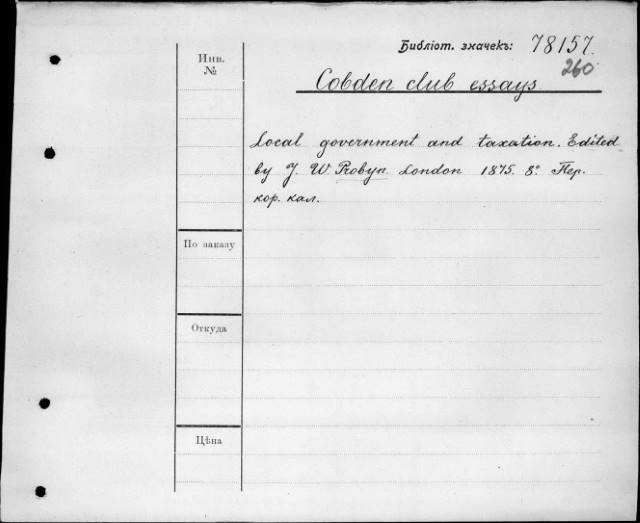 Библіот. значекъ: 78157.
260
Инв.
№
Cobden club essays
Local government and taxation. Edited
by J. W. Probyn. London 1875. 8° Пер.
кор. кал.
По заказу
Откуда
Цѣна